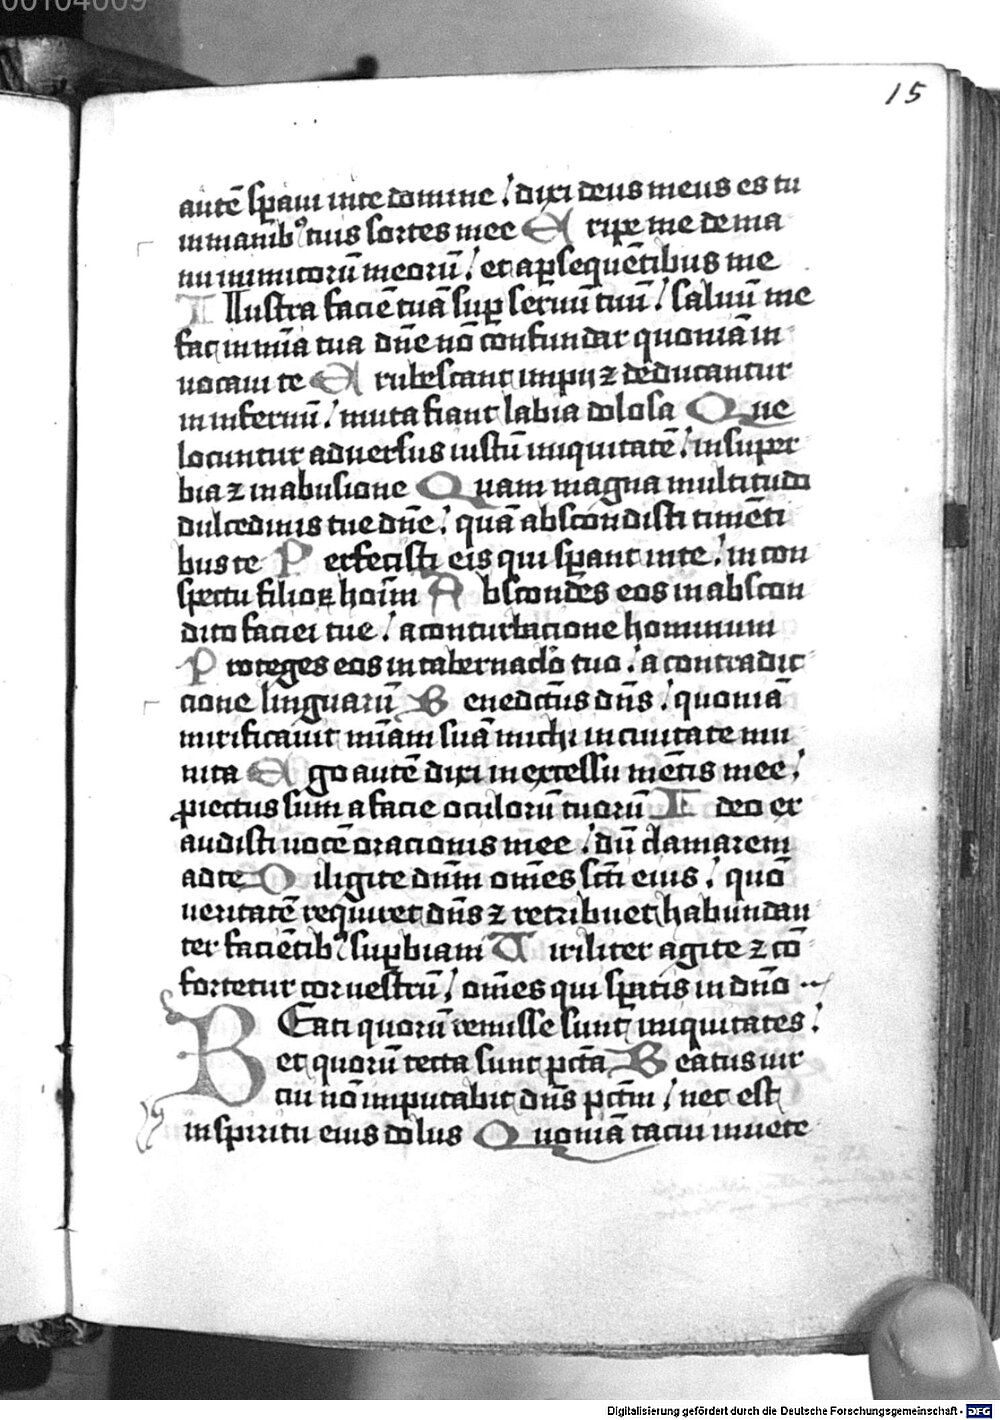 00104009
15
autē sꝑaui in te domine / dixi deus meus es tu
in manibꝰ tuis sortes mee E ripe me de ma
nu inimicorū meorū / et a ꝑsequētibus me
I llustra faciē tuā suꝑ seruū tuū / saluū me
fac in mīa tua dn̄e nō confundar quoniā in
uocaui te E rubescant impij ⁊ deducantur
in infernū / muta fiant labia dolosa Q ue
locuntur aduersus iustū iniquitatē / in super
bia ⁊ in abusione Q uam magna multitudo
dulcedinis tue dn̄e / quā abscondisti timēti
bus te P erfecisti eis qui sꝑant in te / in con
spectu filioꝝ hoīm A bscondes eos in abscon
dito faciei tue / a conturbacione hominum
P roteges eos in tabernaclo tuo / a contradic
cione linguarū B enedictus dn̄s / quoniā
mirificauit mīam suā michi in ciuitate mu
nita E go autē dixi in excessu mētis mee /
ꝓiectus sum a facie oculorū tuorū I deo ex
audisti uocē oracionis mee / dū clamarem
ad te D iligite dn̄m om̄es sc̄ti eius / quō
ueritatē requiret dn̄s ⁊ retribuet habundan
ter faciētibꝰ suꝑbiam U iriliter agite ⁊ cō
fortetur cor uestrū / om̄es qui sꝑatis in dn̄o
B Eati quorū remisse sunt iniquitates /
et quorū tecta sunt pc̄ta B eatus uir
cui nō imputabit dn̄s pc̄tm / nec est
in spiritu eius dolus Q uoniā tacui inuete
Digitalisierung gefördert durch die Deutsche Forschungsgemeinschaft - DFG